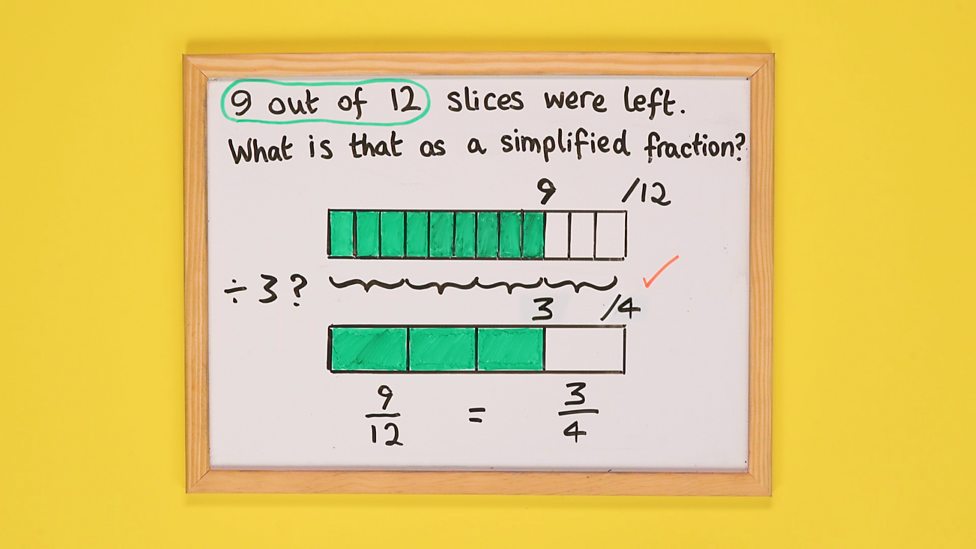 9 out of 12 slices were left.
What is that as a simplified fraction?
9 /12
÷ 3 ?
3 /4
9/12 = 3/4